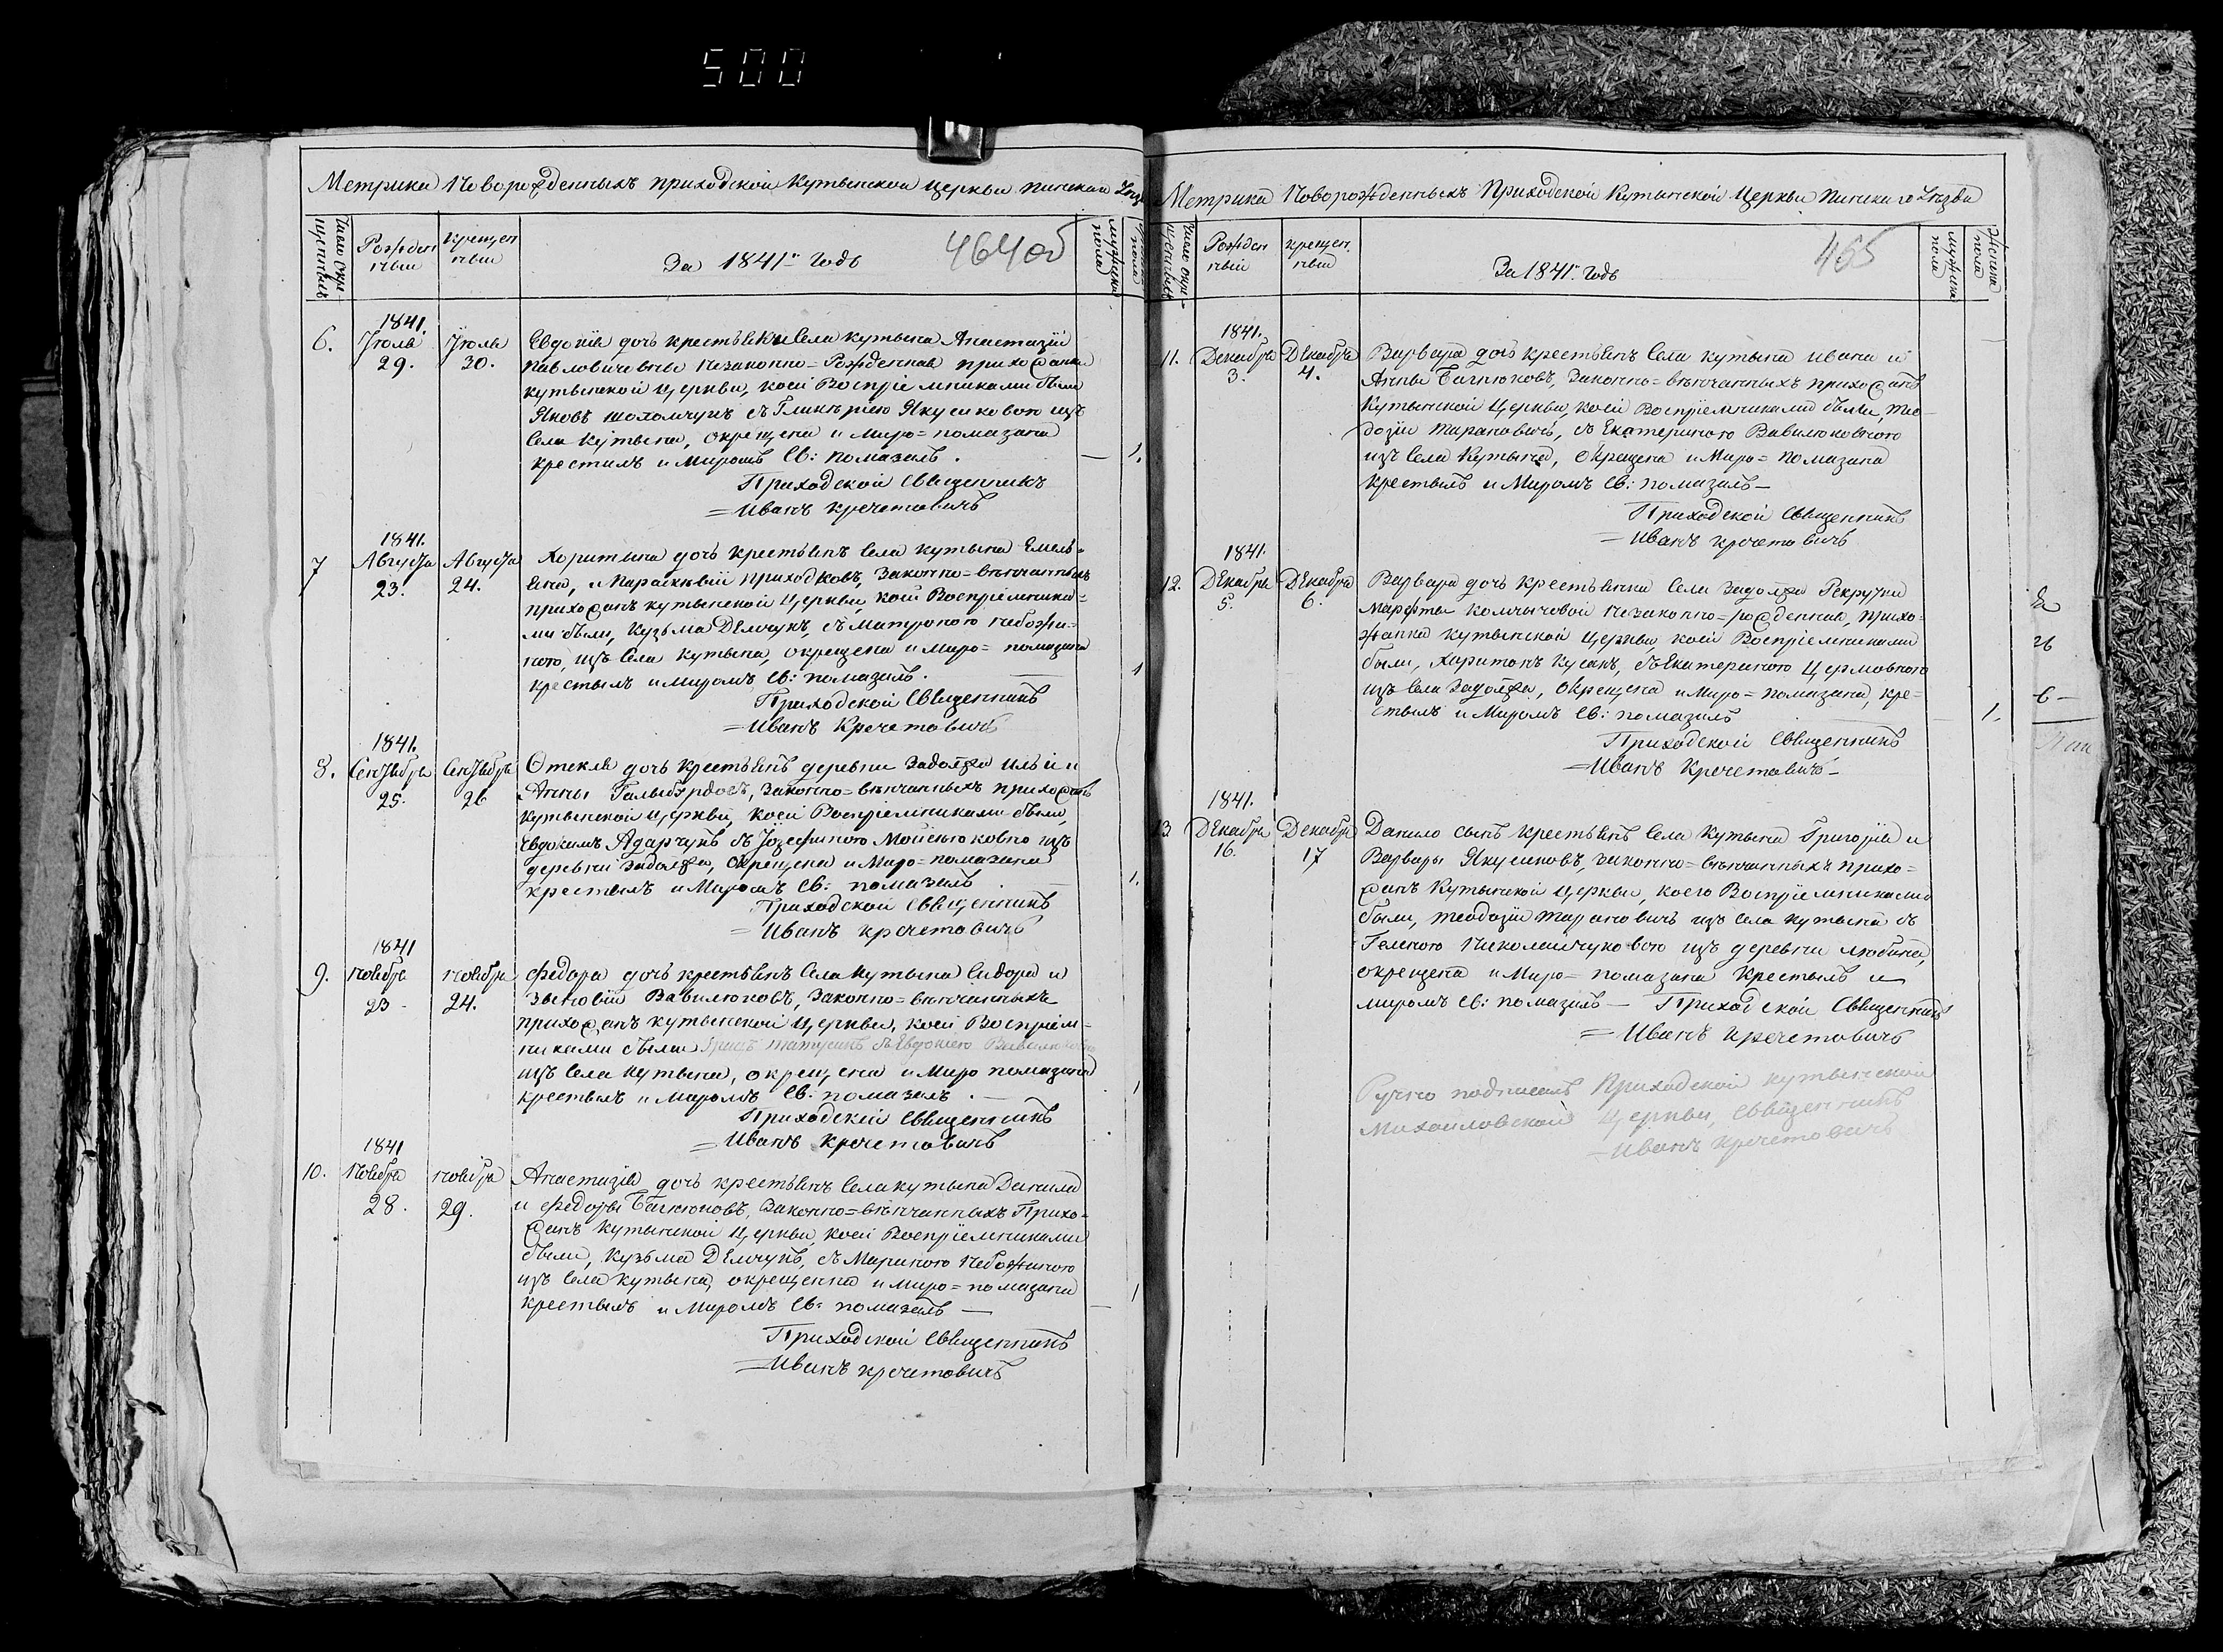 500
Метрика Новорожденныхъ приходской Кутынской церкви пинскаго
Число окрещенныхъ
Рожден
ныи
крещен
ныи
За 1841й Годъ
464об
мужеска
пола
пола
6.
1841.
Іюля
29.
Іюля
30.
Евдокія дочь крестьянки Села Кутына Анастазіи
Павловичевны Незаконно=Рожденная прихожанки
кутынской церкви, коей Воспріемниками были
Яковъ шоломчукъ съ Гликеріею Якусиковою изъ
Села Кутына, окрещена и Миро=помазана
крестилъ и Миромъ Св: помазалъ.
— 1.
Приходской Священникъ
=Иванъ кречетовичъ
7
1841.
Августа
23.
Августа
24.
Харитына дочь крестьянъ Села Кутына Емель-
яна, и Параскевіи приходковъ, Законно=вѣнчанныхъ
прихожанъ кутынской церкви, коей Воспріемника-
ми были, Кузьма Демчукъ, съ Матроною Небожи-
ною, изъ Села Кутына, окрещена и Миро=помазана
крестилъ и Миромъ Св: помазалъ.
1
Приходской Священникъ
=Иванъ Кречетовичъ
8.
1841.
Сентября
25.
Сентября
26
Отекля дочь крестьянъ деревни Задолжа Ильи и
Анны Законно=вѣнчанныхъ прихожанъ
кутынской церкви, коей Воспріемниками были,
Евдокимъ Адарчукъ съ Іозефиною Мойсеюковно изъ
деревни Задолжа, окрещена и Миро=помазана
крестилъ и Миромъ Св: помазалъ
1.
Приходской Священникъ
=Иванъ кречетовичъ
9.
1841
Ноября
23
Ноября
24.
Федора дочь крестьянъ Села Кутына Сидора и
Зеновіи Вавилюковъ, Законно=вѣнчанныхъ
прихожанъ кутынской церкви, коей Воспріем-
никами были съ Евдокіею
изъ Села Кутына, окрещена и Миро помазана
крестилъ и Миромъ Св: помазалъ.
1
Приходскій Священникъ
=Иванъ кречетовичъ
10.
1841
Ноября
28.
Ноября
29.
Анастазія дочь крестьянъ Села кутына Данила
и Федоры Багнюковъ, Законно=вѣнчанныхъ Прихо-
жанъ Кутынской церкви, коей Воспріемниками
были, Кузьма Демчукъ, съ Мариною Небожиною
изъ Села Кутына, окрещенна и Миро=помазана
крестилъ и Миромъ Св: помазалъ —
— 1
Приходской Священникъ
=Иванъ кречетовичъ
Метрика Новорожденныхъ Приходской Кутынской Церкви Пинскаго Уѣзда
Число окре-
щенныхъ
Рожден
ныи
крещен
ныи
За 1841й Годъ
465
мужеска
пола
Женска
пола
11.
1841.
Декабря
3.
Декабря
4.
Варвара дочь крестьянъ Села кутына Ивана и
Анны Багнюковъ, Законно=вѣнчанныхъ прихожанъ
Кутынской Церкви, коей Воспріемниками были, Тео-
дозіи Тарановичъ, съ Екатериною Вавилюковною
изъ Села Кутына, окрещена и Миро=помазана
крестилъ и Миромъ Св: помазалъ—
Приходской Священникъ
=Иванъ кречетовичъ
12.
1841.
Декабря
5.
Декабря
6.
Варвара дочь Крестьянки Села Задолжа Рекрутки
Марфты незаконно=рожденная, прихо-
жанка кутынской церкви, коей Воспріемниками
были, Харитонъ Кусакъ, съ Екатериною
изъ Села Задолжа, окрещена и Миро=помазана, кре-
стилъ и Миромъ Св: помазалъ
1.
Приходской Священникъ
=Иванъ Кречетовичъ
13
1841.
Декабря
16.
Декабря
17
Данило сынъ крестьянъ Села Кутына Григорія и
Варвары Якусиковъ, законно=вѣнчанныхъ прихо-
жанъ Кутынской церкви, коего Воспріемниками
были, Теодозіи Тарановичъ изъ Села Кутына съ
Геленою Николайчуковою изъ деревни Любина,
окрещена и Миро=помазана Крестилъ и
миромъ Св: помазалъ— Приходской Священникъ
=Иванъ Кречетовичъ
Ручно подписалъ Приходской кутынской
Михайловской Церкви, Священникъ
=Иванъ Кречетовичъ